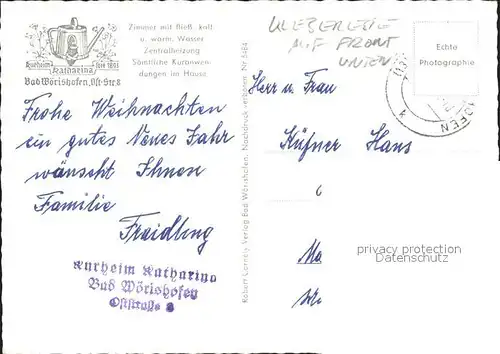 Kurheim Katharina seit 1891
Bad Wörishofen, Ost-Str. 8
Zimmer mit fließ. kalt.
u. warm. Wasser
Zentralheizung
Sämtliche Kuranwen-
dungen im Hause
Frohe Weihnachten
ein gutes Neues Jahr
wünscht Ihnen
Familie
Fraidling
Kurheim Katharina
Bad Wörishofen
Oststraße 8
Robert Lornely Verlag Bad Wörishofen. Nachdruck verboten. Nr.
KLEBERESTE
AUF FRONT
UNTEN
Echte
Photographie
OFEN
Herr u. Frau
Küfner Hans
privacy protection
Datenschutz